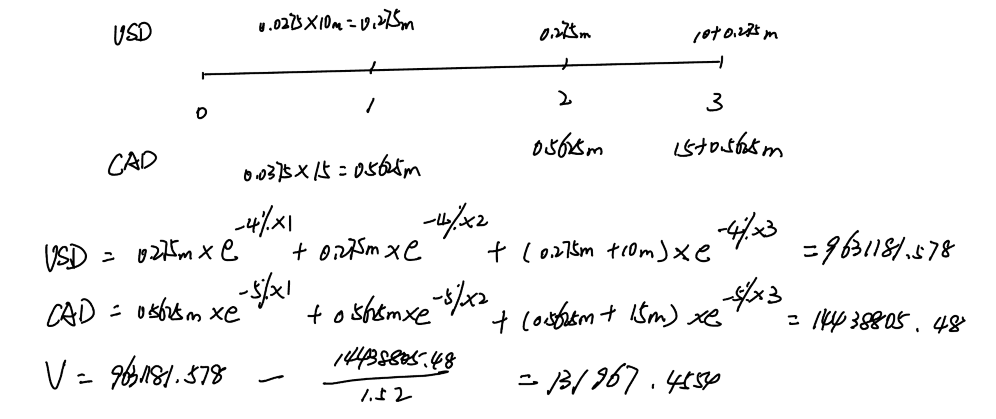 USD 0.0275×10m=0.275m 0.275m 10+0.275m
0 1 2 3
CAD 0.0375×15=0.5625m 0.5625m 15+0.5625m
USD = 0.275m×e^{-4%×1} + 0.275m×e^{-4%×2} + (0.275m+10m)×e^{-4%×3} = 9631181.578
CAD = 0.5625m×e^{-5%×1} + 0.5625m×e^{-5%×2} + (0.5625m+15m)×e^{-5%×3} = 14438805.48
V = 9631181.578 − 14438805.48/1.52 = 131967.4554